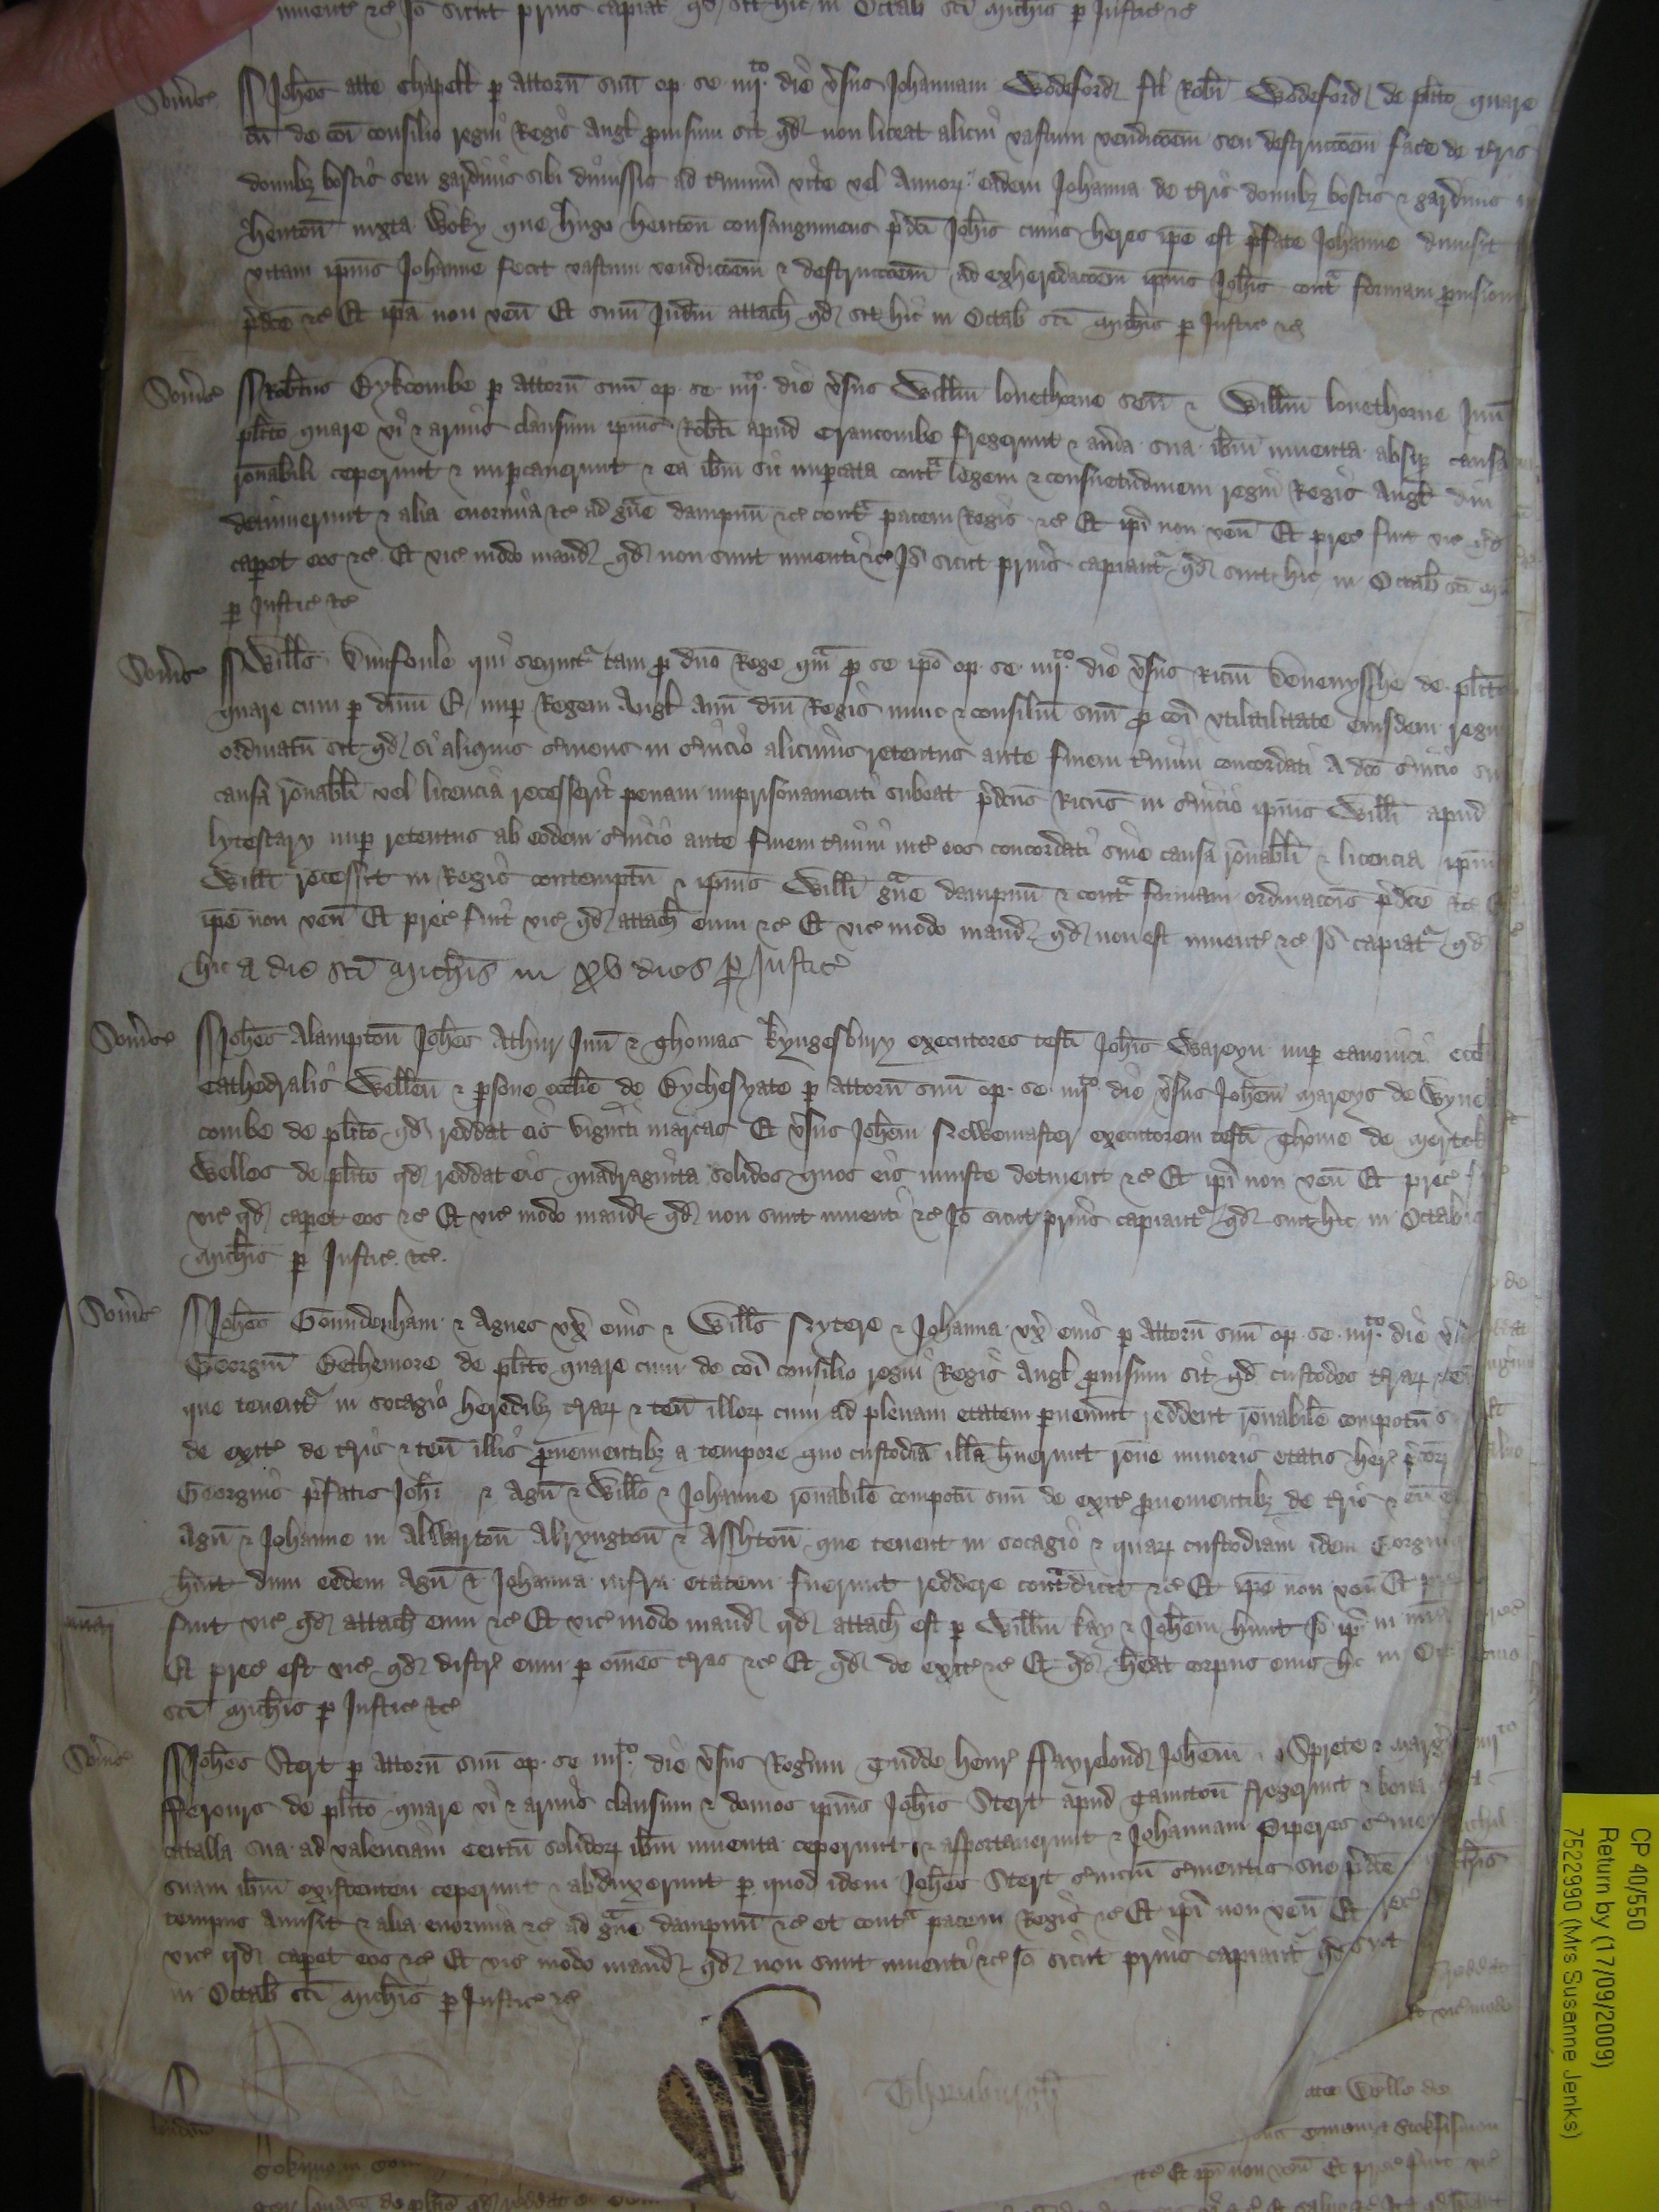 invent etc Io sicut prius capiat qd sit hic in Octab sci Michis p Justic etc
Som's Johes atte Chapell p attorn suu op se iiijto die v'sus Johannam Wodeford fil Robti Wodeford de plito quare
cu de coi consilio regni Regis Angl provisum sit qd non liceat alicui vastum vendicoem seu destruccoem fac'e de t'ris
domibz boscis seu gardinis sibi dimissis ad t'minu vite vel Annor' eadem Johanna de t'ris domibz boscis & gardinis in
Henton iuxta Woky que Hugo Henton consanguineus p'dci Johis cuius heres ipe est p'fate Johanne dimisit
vitam ipius Johanne fecit vastum vendicoem & destruccoem ad exheredacoem ipius Johis cont' formam provision
p'dce etc Et ipa non ven Et sum Judm attach qd sit hic in Octab sci Michis p Justic etc
Som's Robtus Dykcombe p attorn suu op se iiijto die v'sus Willm Lovethorne sen & Willm Lovethorne Jun
plito quare vi & armis clausum ipius Robti apud Crancombe fregerunt & av'ia sua ibm inventa absqz causa
ronabili ceperunt & imp'caverunt & ea ibm sic imp'cata cont' legem & consuetudinem regni Regis Angl diu
detinuerunt & alia enormia etc ad g've dampnu etc cont' pacem Regis etc Et ipi non ven Et prec fuit vic qd
cap'et eos etc Et vic modo mand qd non sunt inventi etc Io sicut prius capiant' qd sint hic in Octab sci Mi
p Justic etc
Som's Wills Vinfoule qui sequit' tam p dno Rege qm p se ipo op se iiijto die v'sus Ricm Devenysshe de plito
quare cum p dnm E nup Regem Angl avu dni Regis nunc & consiliu suu p coi utilitilitate eiusdem regni
ordinatu sit qd si aliquis s'viens in s'vicio alicuius retentus ante finem t'mini concordati a dco s'vicio sine
causa ronabli vel licencia recesserit penam imprisonamenti subeat p'dcus Ricus in s'vicio ipius Willi apud
Lytestary nup retentus ab eodem s'vicio ante finem t'mini int' eos concordati sine causa ronabli & licencia ipius
Willi recessit in Regis contemptu & ipius Willi g've dampnu & cont' formam ordinacois p'dce etc Et
ipe non ven Et prec fuit vic qd attach eum etc Et vic modo mand qd non est invent etc Io capiat' qd
hic a die sci Michis in xv dies p Justic
Som's Johes Alampton Johes Athur Jun & Thomas Kyngesbury executores testi Johis Wareyn nup canonici eccl
Cathedralis Wellen & p'sone ecclie de Dychesyate p attorn suu op se iiijto die v'sus Johem Mareys de Wyne
combe de plito qd reddat eis viginti marcas Et v'sus Johem Newemaster executorem testi Thome de Mertok
Welles de plito qd reddat eis quadraginta solidos quos eis iniuste detinent etc Et ipi non ven Et prec fuit
vic qd cap'et eos etc Et vic modo mand qd non sunt inventi etc Io sicut prius capiant' qd sint hic in Octabis
Michis p Justic etc
Som's Johes Goundenham & Agnes ux' eius & Wills Rytere & Johanna ux' eius p attorn suu op se iiijto die v'sus
Georgiu Dethemore de plito quare cum de coi consilio regni Regis Angl provisum sit qd custodes t'rar' & ten
que tenent' in socagio heredibz t'rar' & ten illor' cum ad plenam etatem p'ven'int reddent ronabile compotu s
de exit' de t'ris & ten illis provenientibz a tempore quo custodia illa h'uerunt rone minoris etatis her' p'dcor'
Georgius p'fatis Johi & Agn & Willo & Johanne ronabile compotu suu de exit' provenientibz de t'ris & ten
Agn & Johanne in Alwarton Alryngton & Asshton que tenent in socagio & quar' custodiam idem Georgius
h'uit dum eedem Agn & Johanna infra etatem fuerunt reddere cont'dicit etc Et ipe non ven Et prec
fuit vic qd attach eum etc Et vic modo mand qd attach est p Willm Kay & Johem Hunt Io ipi in mia
Et prec est vic qd distr' eum p omes t'ras etc Et qd de exit' etc Et qd h'eat corpus eius hic in Oct
sci Michis p Justic etc
Som's Johes Stert p attorn suu op se iiijto die v'sus Rog'um Gudde Henr' Ffayrelond Johem Sprete & Marg
Fferours de plito quare vi & armis clausum & domos ipius Johis Stert apud Taunton fregerunt & bona
catalla sua ad valenciam centu solidor' ibm inventa ceperunt & asportaverunt & Johannam Piperes s'vie
suam ibm existentem ceperunt & abduxerunt p quod idem Johes Stert s'viciu s'vientis sue p'dce
tempus amisit & alia enormia etc ad g've dampnu etc et cont' pacem Regis etc Et ipi non ven Et prec
vic qd cap'et eos etc Et vic modo mand qd non sunt inventi etc Io sicut prius capiant' qd sint
in Octab sci Michis p Justic etc
CP 40/550
Return by (17/09/2009)
7522990 (Mrs Susanne Jenks)